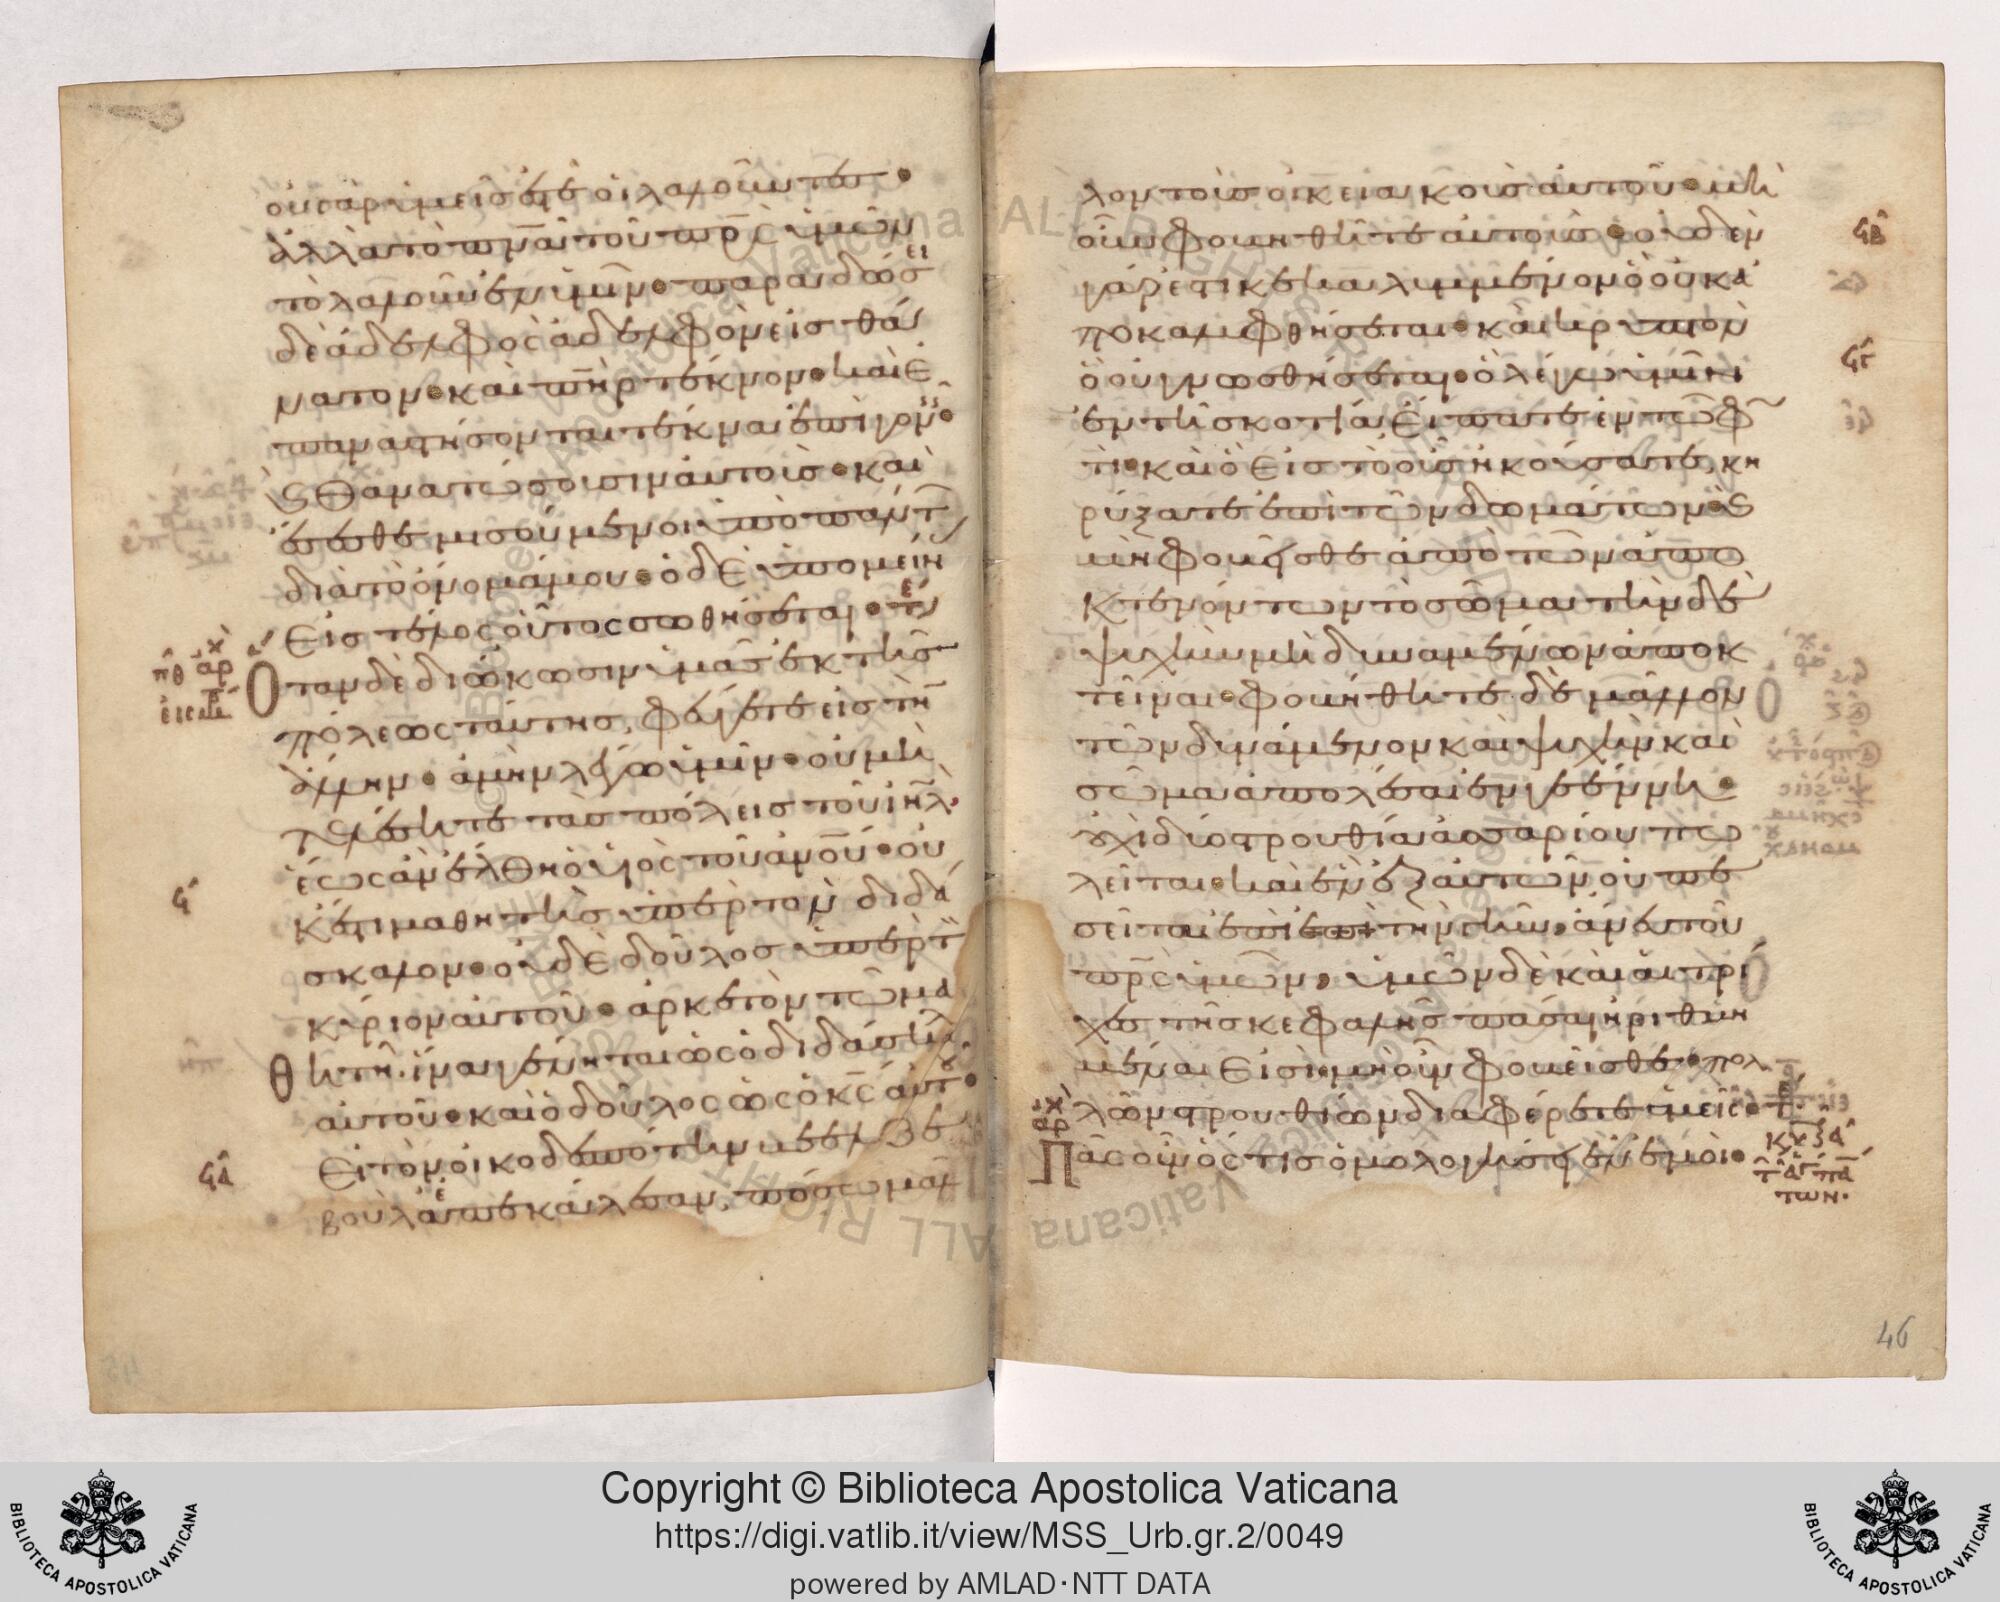 οὐ γὰρ ὑμεῖς ἐστὲ οἱ λαλοῦντες·
ἀλλὰ τὸ πν̅α τοῦ πρ̅ς ὑμῶν
τὸ λαλοῦν ἐν ὑμῖν· παραδώσει
δὲ ἀδελφὸς ἀδελφὸν εἰς θά
νατον· καὶ πη̅ρ τέκνον· καὶ ἐ
παναστήσονται τέκνα ἐπὶ γον
ϛ θανατώσουσιν αὐτοὺς· καὶ
ἔσεσθε μισούμενοι ὑπὸ πάντ
διὰ τὸ ὄνομά μου· ὁ δὲ ὑπομείν
εἰς τέλος οὗτος σωθήσεται·
Ὅταν δὲ διώκωσιν ὑμᾶς ἐκ τῆς
πόλεως ταύτης, φεύγετε εἰς τὴν
ἄλλην· ἀμὴν λέγω ὑμῖν· οὐ μὴ
τελέσητε τὰς πόλεις τοῦ ιη̅λ·
ἕως ἂν ἔλθη ὁ υἱὸς τοῦ ἀνο̅υ· οὐ
κ ἔστι μαθητὴς ὑπὲρ τὸν διδά
σκαλον· οὐδὲ δοῦλος ὑπὲρ τ
κύριον αὐτοῦ· ἀρκετὸν τῶ μα
θητῆ· ἵνα γένηται ὡς ὁ διδάσκαλ
αὐτοῦ· καὶ ὁ δοῦλος ὡς ὁ κ̅ς αὐτοῦ·
Εἰ τὸν οἰκοδεσπότην βεελζε
βοὺλ ἀπεκάλεσαν, πόσω μαλ
λον τοὺς οἰκειακοὺς αὐτοῦ· μὴ
οὖν φοβηθῆτε αὐτούς· οὐδὲν
γάρ ἐστι κεκαλυμμένον ὃ οὐκ ἀ
ποκαλυφθήσεται· καὶ κρυπτὸν
ὃ οὐ γνωσθήσεται· ὃ λέγω ὑμῖν
ἐν τῆ σκοτία· εἴπατε ἐν τῶ φω
τὶ· καὶ ὃ εἰς τὸ οὖς ἠκούσατε, κη
ρύξατε ἐπὶ τῶν δωμάτων· ϛ
μὴ φοβεῖσθε ἀπὸ τῶν ἀπο
κτενόντων τὸ σῶμα· τὴν δὲ
ψυχὴν μὴ δυναμένων ἀποκ
τεῖναι· φοβήθητε δὲ μᾶλλον
τὸν δυνάμενον καὶ ψυχὴν καὶ
σῶμα ἀπολέσαι ἐν γεέννη·
οὐχὶ δύο στρουθία ἀσσαρίου πω
λεῖται· καὶ ἓν ἐξ αὐτῶν οὐ πε
σεῖται ἐπὶ τὴν γῆν· ἄνευ τοῦ
πρ̅ς ὑμῶν· ὑμῶν δὲ καὶ αἱ τρί
χες τῆς κεφαλῆς πᾶσαι ἠριθμη
μέναι εἰσὶ· μὴ οὖν φοβεῖσθε· πολ
λῶν στρουθίων διαφέρετε ὑμεῖς·
Πᾶς οὖν ὅστις ὁμολογήσει ἐν ἐμοὶ·
46
Copyright © Biblioteca Apostolica Vaticana
https://digi.vatlib.it/view/MSS_Urb.gr.2/0049
powered by AMLAD·NTT DATA
BIBLIOTECA APOSTOLICA VATICANA
BIBLIOTECA APOSTOLICA VATICANA